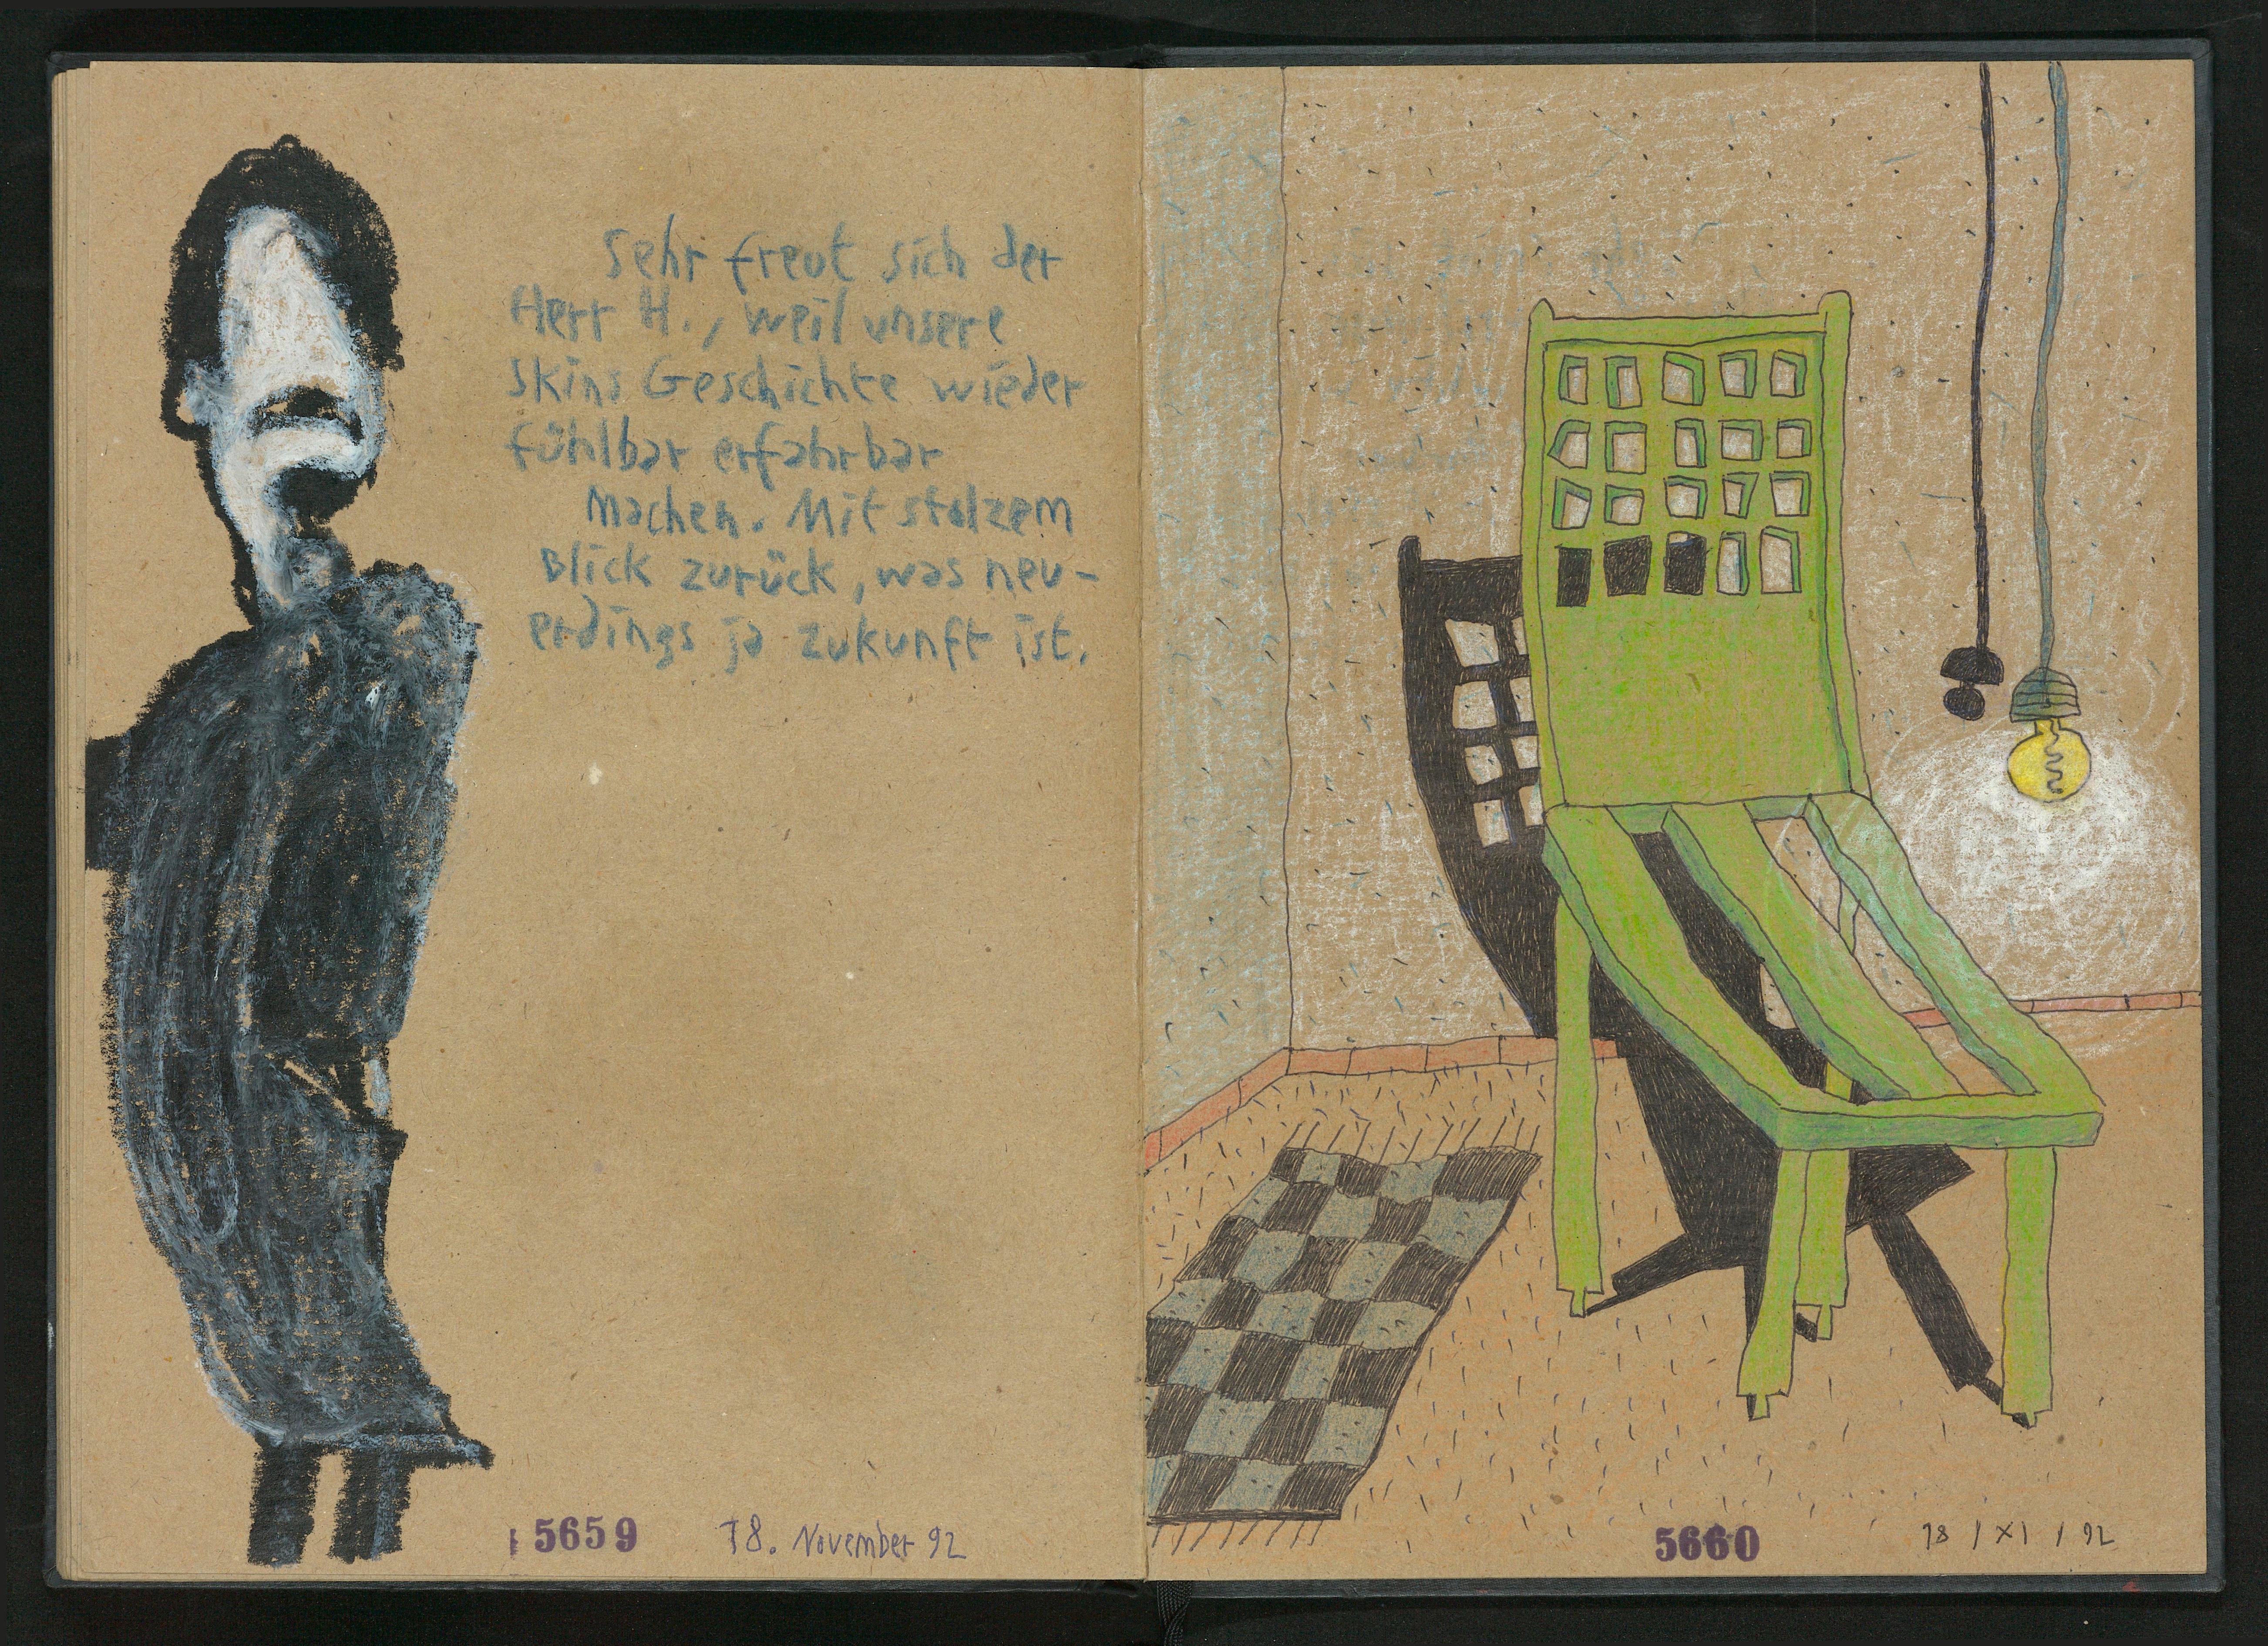 Sehr freut sich der
Herr H., weil unsere
Skins Geschichte wieder
fühlbar erfahrbar
Machen. Mit stolzem
Blick zurück, was neu-
erdings ja zukunft ist.
5659
18. November 92
5660
18 / XI / 92